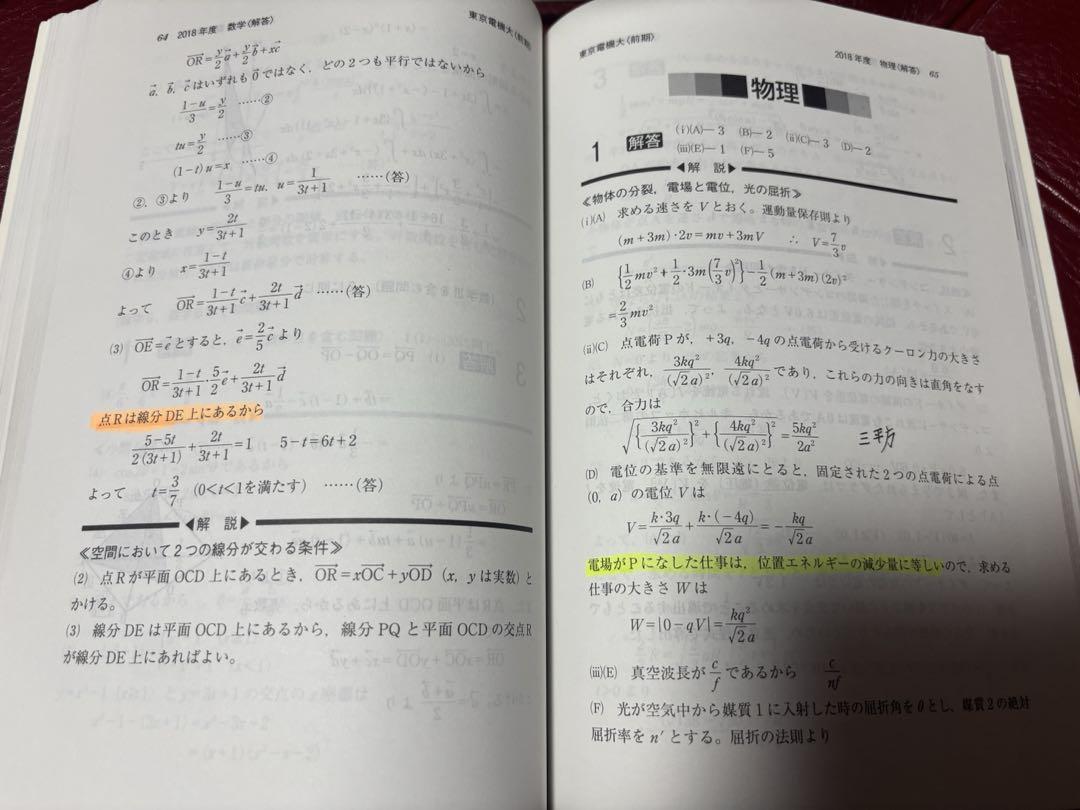 64 2018年度 数学〈解答〉 東京電機大〈前期〉
$\overrightarrow{OR}=\frac{y}{2}\vec{a}+\frac{y}{2}\vec{b}+x\vec{c}$
$\vec{a}$, $\vec{b}$, $\vec{c}$はいずれも$\vec{0}$ではなく, どの2つも平行ではないから
$\frac{1-u}{3}=\frac{y}{2}$ ……②
$tu=\frac{y}{2}$ ……③
$(1-t)u=x$ ……④
②, ③より $\frac{1-u}{3}=tu$, $u=\frac{1}{3t+1}$ ……(答)
このとき $y=\frac{2t}{3t+1}$
④より $x=\frac{1-t}{3t+1}$
よって $\overrightarrow{OR}=\frac{1-t}{3t+1}\vec{c}+\frac{2t}{3t+1}\vec{d}$ ……(答)
(3) $\overrightarrow{OE}=\vec{e}$とすると, $\vec{e}=\frac{2}{5}\vec{c}$より
$\overrightarrow{OR}=\frac{1-t}{3t+1}\cdot\frac{5}{2}\vec{e}+\frac{2t}{3t+1}\vec{d}$
点Rは線分DE上にあるから
$\frac{5-5t}{2(3t+1)}+\frac{2t}{3t+1}=1$ $5-t=6t+2$
よって $t=\frac{3}{7}$ (0<t<1を満たす) ……(答)
◀解 説▶
≪空間において2つの線分が交わる条件≫
(2) 点Rが平面OCD上にあるとき, $\overrightarrow{OR}=x\overrightarrow{OC}+y\overrightarrow{OD}$ (x, yは実数) と
かける。
(3) 線分DEは平面OCD上にあるから, 線分PQと平面OCDの交点R
が線分DE上にあればよい。
東京電機大〈前期〉 2018年度 物理〈解答〉 65
物理
1 解答 (i)(A)―3 (B)―2 (ii)(C)―3 (D)―2
(iii)(E)―1 (F)―5
◀解 説▶
≪物体の分裂, 電場と電位, 光の屈折≫
(i)(A) 求める速さをVとおく。運動量保存則より
$(m+3m)\cdot 2v=mv+3mV$ ∴ $V=\frac{7}{3}v$
(B) $\left\{\frac{1}{2}mv^2+\frac{1}{2}\cdot 3m\left(\frac{7}{3}v\right)^2\right\}-\frac{1}{2}(m+3m)(2v)^2$
$=\frac{2}{3}mv^2$
(ii)(C) 点電荷Pが, +3q, -4qの点電荷から受けるクーロン力の大きさ
はそれぞれ, $\frac{3kq^2}{(\sqrt{2}a)^2}$, $\frac{4kq^2}{(\sqrt{2}a)^2}$であり, これらの力の向きは直角をなす
ので, 合力は
$\sqrt{\left\{\frac{3kq^2}{(\sqrt{2}a)^2}\right\}^2+\left\{\frac{4kq^2}{(\sqrt{2}a)^2}\right\}^2}=\frac{5kq^2}{2a^2}$ 三平方
(D) 電位の基準を無限遠にとると, 固定された2つの点電荷による点
(0, a) の電位Vは
$V=\frac{k\cdot 3q}{\sqrt{2}a}+\frac{k\cdot(-4q)}{\sqrt{2}a}=-\frac{kq}{\sqrt{2}a}$
電場がPになした仕事は, 位置エネルギーの減少量に等しいので, 求める
仕事の大きさWは
$W=|0-qV|=\frac{kq^2}{\sqrt{2}a}$
(iii)(E) 真空波長が$\frac{c}{f}$であるから $\frac{c}{nf}$
(F) 光が空気中から媒質1に入射した時の屈折角をθとし, 媒質2の絶対
屈折率をn′とする。屈折の法則より